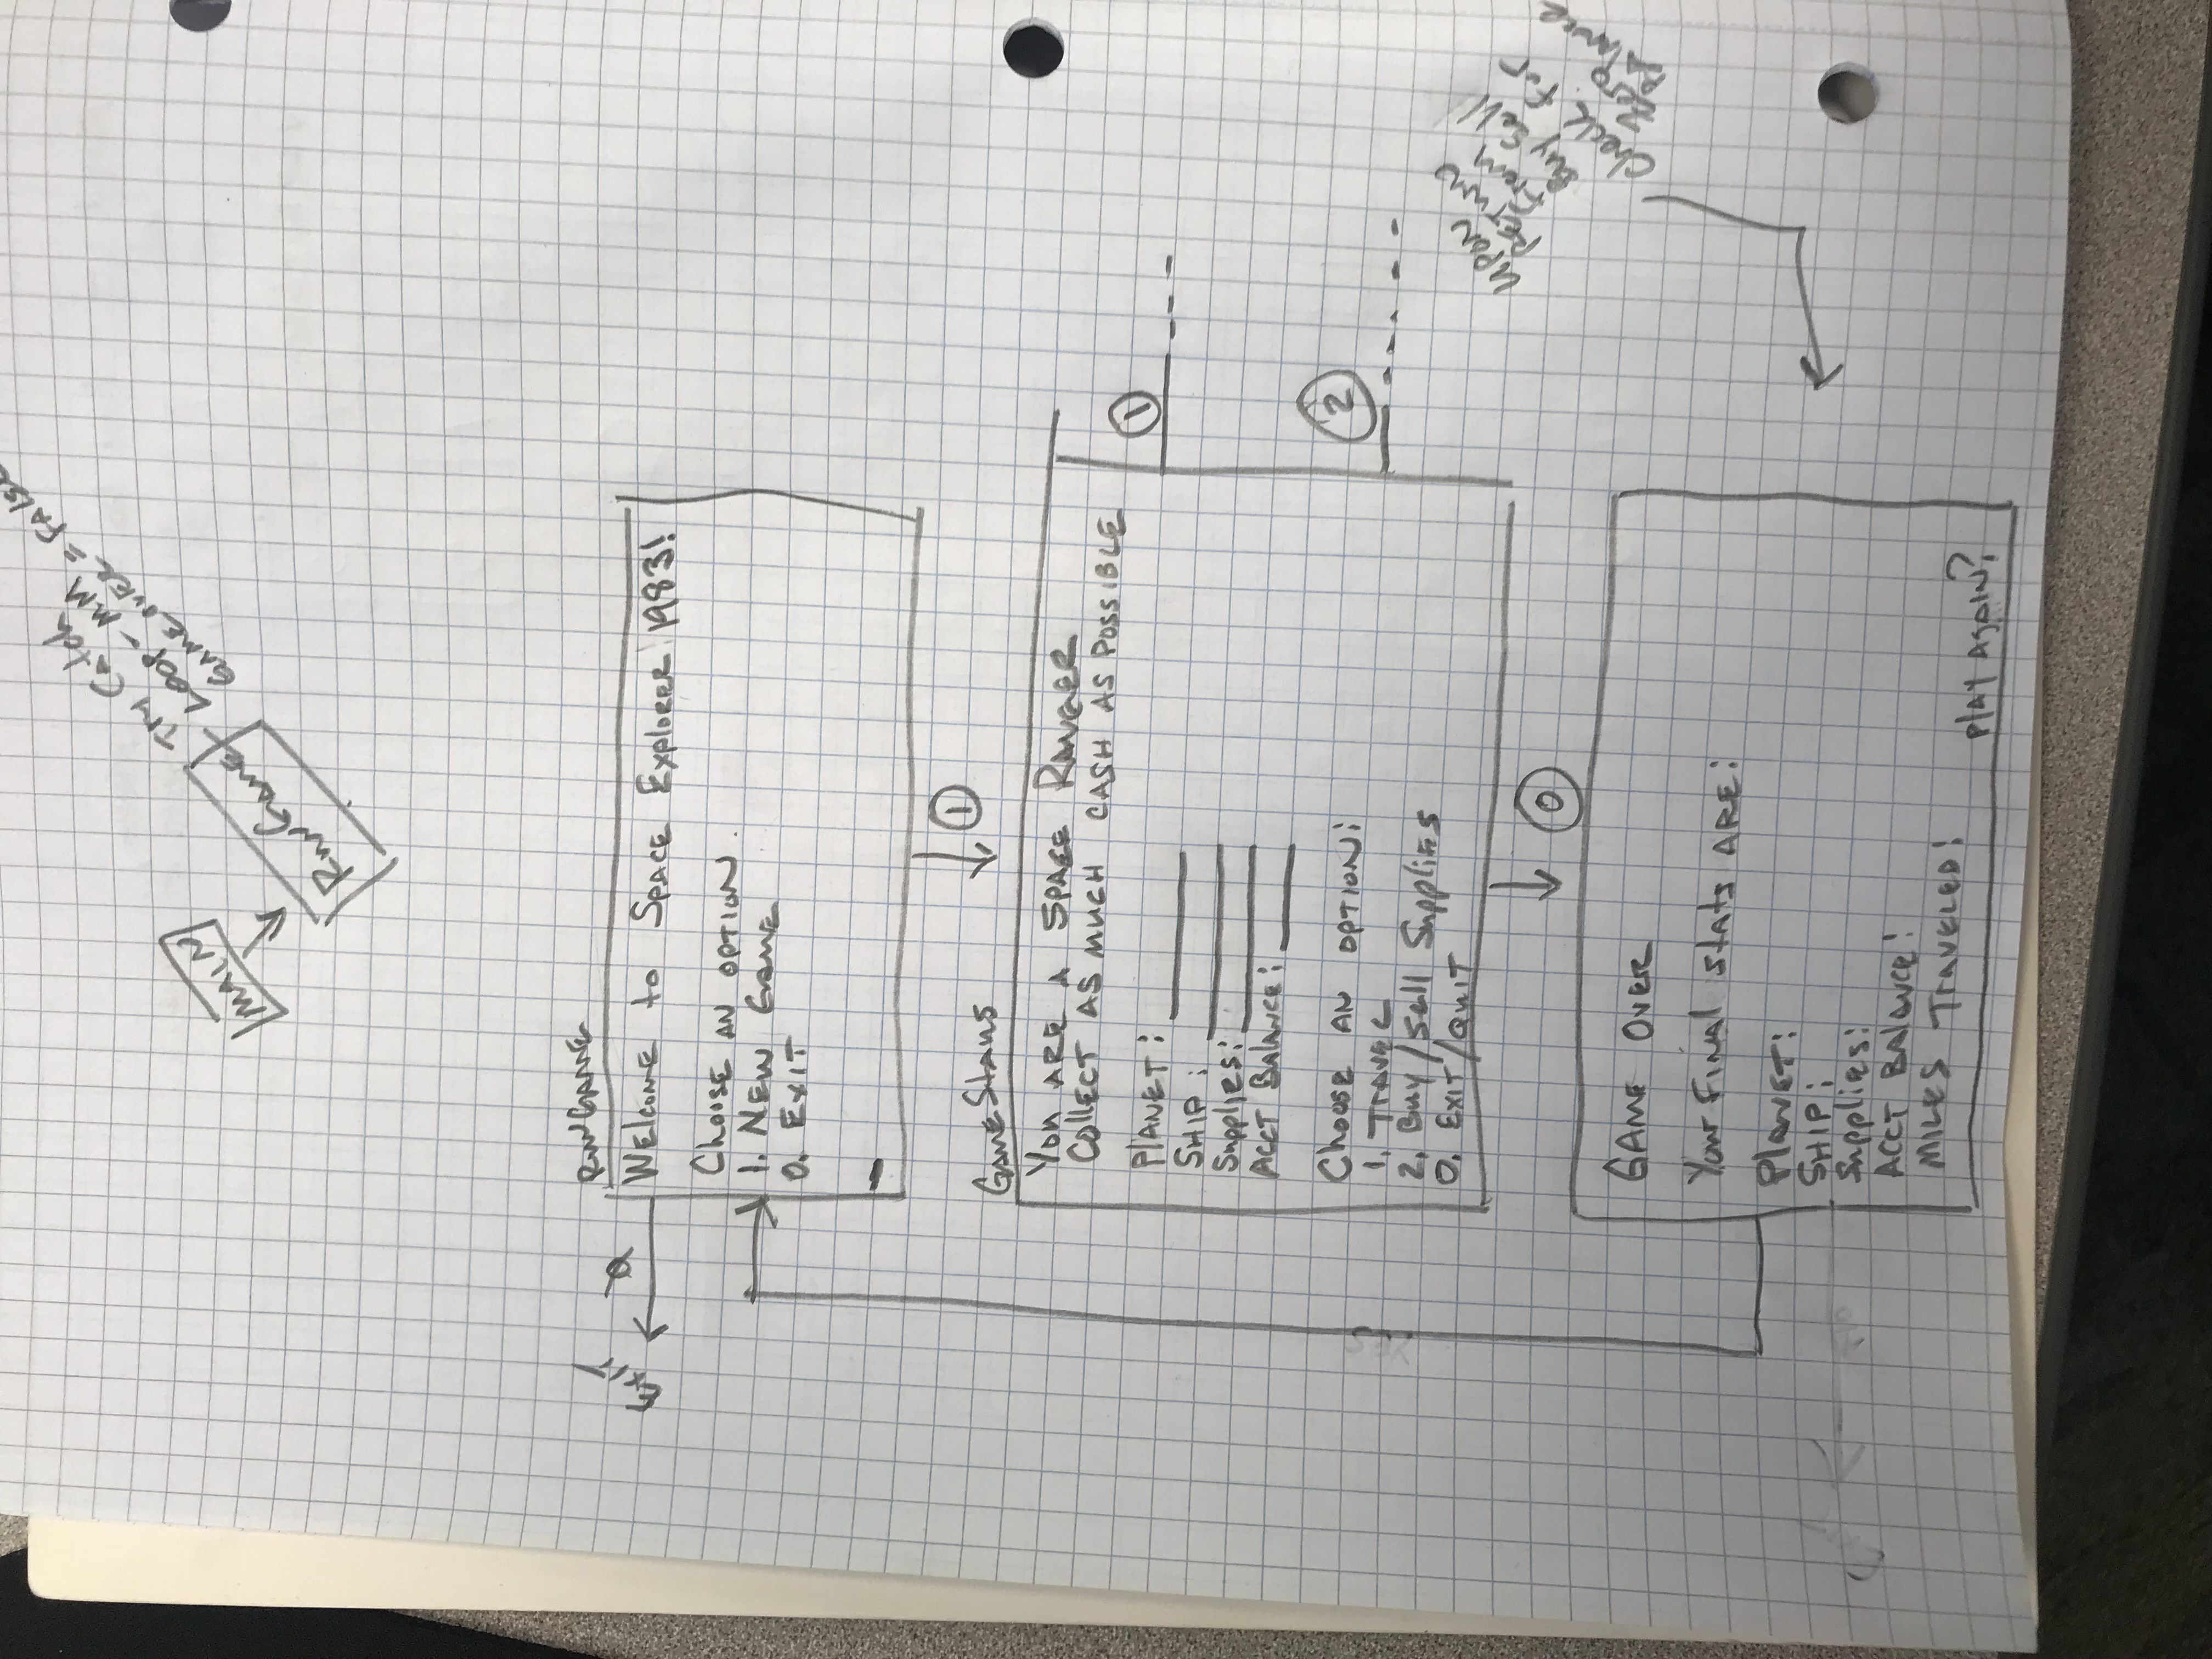 MAIN
RUNGAME
TRY CATCH
LOOP - MM
GAMEOVER = FALSE
RUNGAME
EXIT
WELCOME to SPACE EXPLORER 1983!
CHOOSE AN OPTION.
1. NEW GAME
0. EXIT
1
GAME STATUS
YOU ARE A SPACE RANGER
COLLECT AS MUCH CASH AS POSSIBLE
PLANET:
SHIP:
Supplies:
ACCT BALANCE:
1
CHOOSE AN OPTION:
1. TRAVEL
2. Buy/Sell Supplies
0. EXIT/QUIT
2
UPON
RETURN
From
Buy Sell
Check For
Zero
BALANCE
0
GAME OVER
Your FINAL stats ARE:
PLANET:
SHIP:
Supplies:
ACCT BALANCE:
MILES TRAVELED:
PLAY AGAIN?